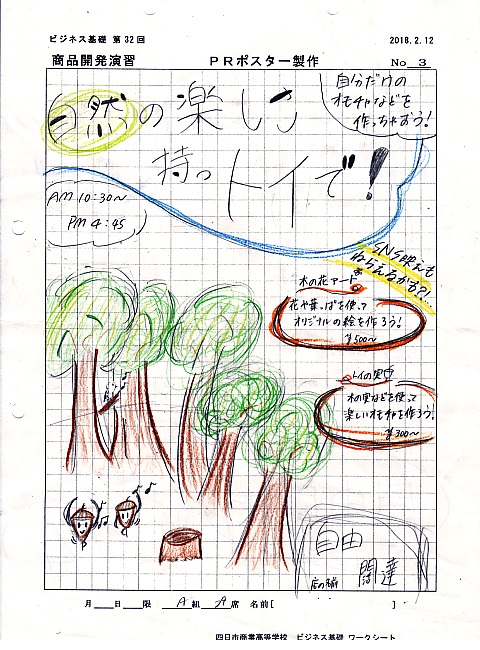 ビジネス基礎 第32回
2018.2.12
商品開発演習
PRポスター製作
No 3
自然の楽しい
持っトイで!
自分だけの
オモチャなどを
作っちゃおう!
AM 10:30〜
PM 4:45
SNS映えも
ねらえるかも?!
木の花アート
花や葉っぱを使って
オリジナルの絵を作ろう!
¥500〜
トイの実
木の実などを使って
楽しいオモチャを作ろう!
¥300〜
自由
闊達
月 日 限 A組 席 名前[ ]
四日市商業高等学校 ビジネス基礎 ワークシート